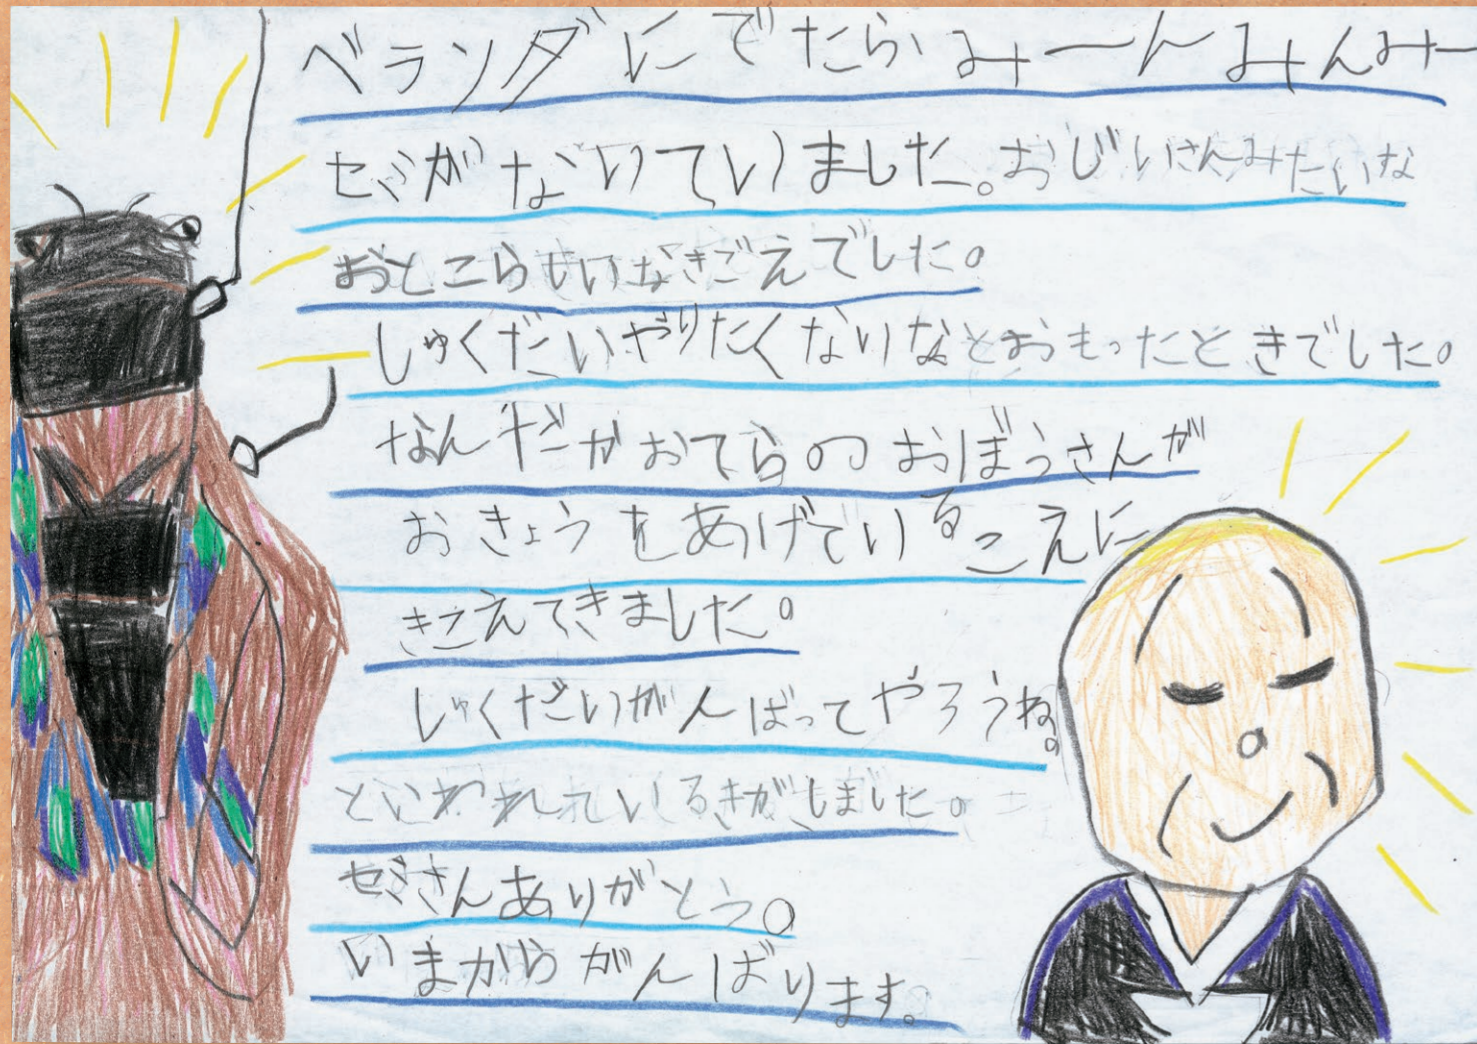 ベランダにでたらみーんみんみー
セミがないていました。おじいさんみたいな
おとこらしいなきごえでした。
しゅくだいやりたくないなとおもったときでした。
なんだかおてらのおぼうさんが
おきょうをあげているこえに
きこえてきました。
しゅくだいがんばってやろうね。
といわれているきがしました。
セミさんありがとう。
いまからがんばります。